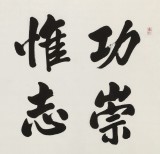 功崇
惟志